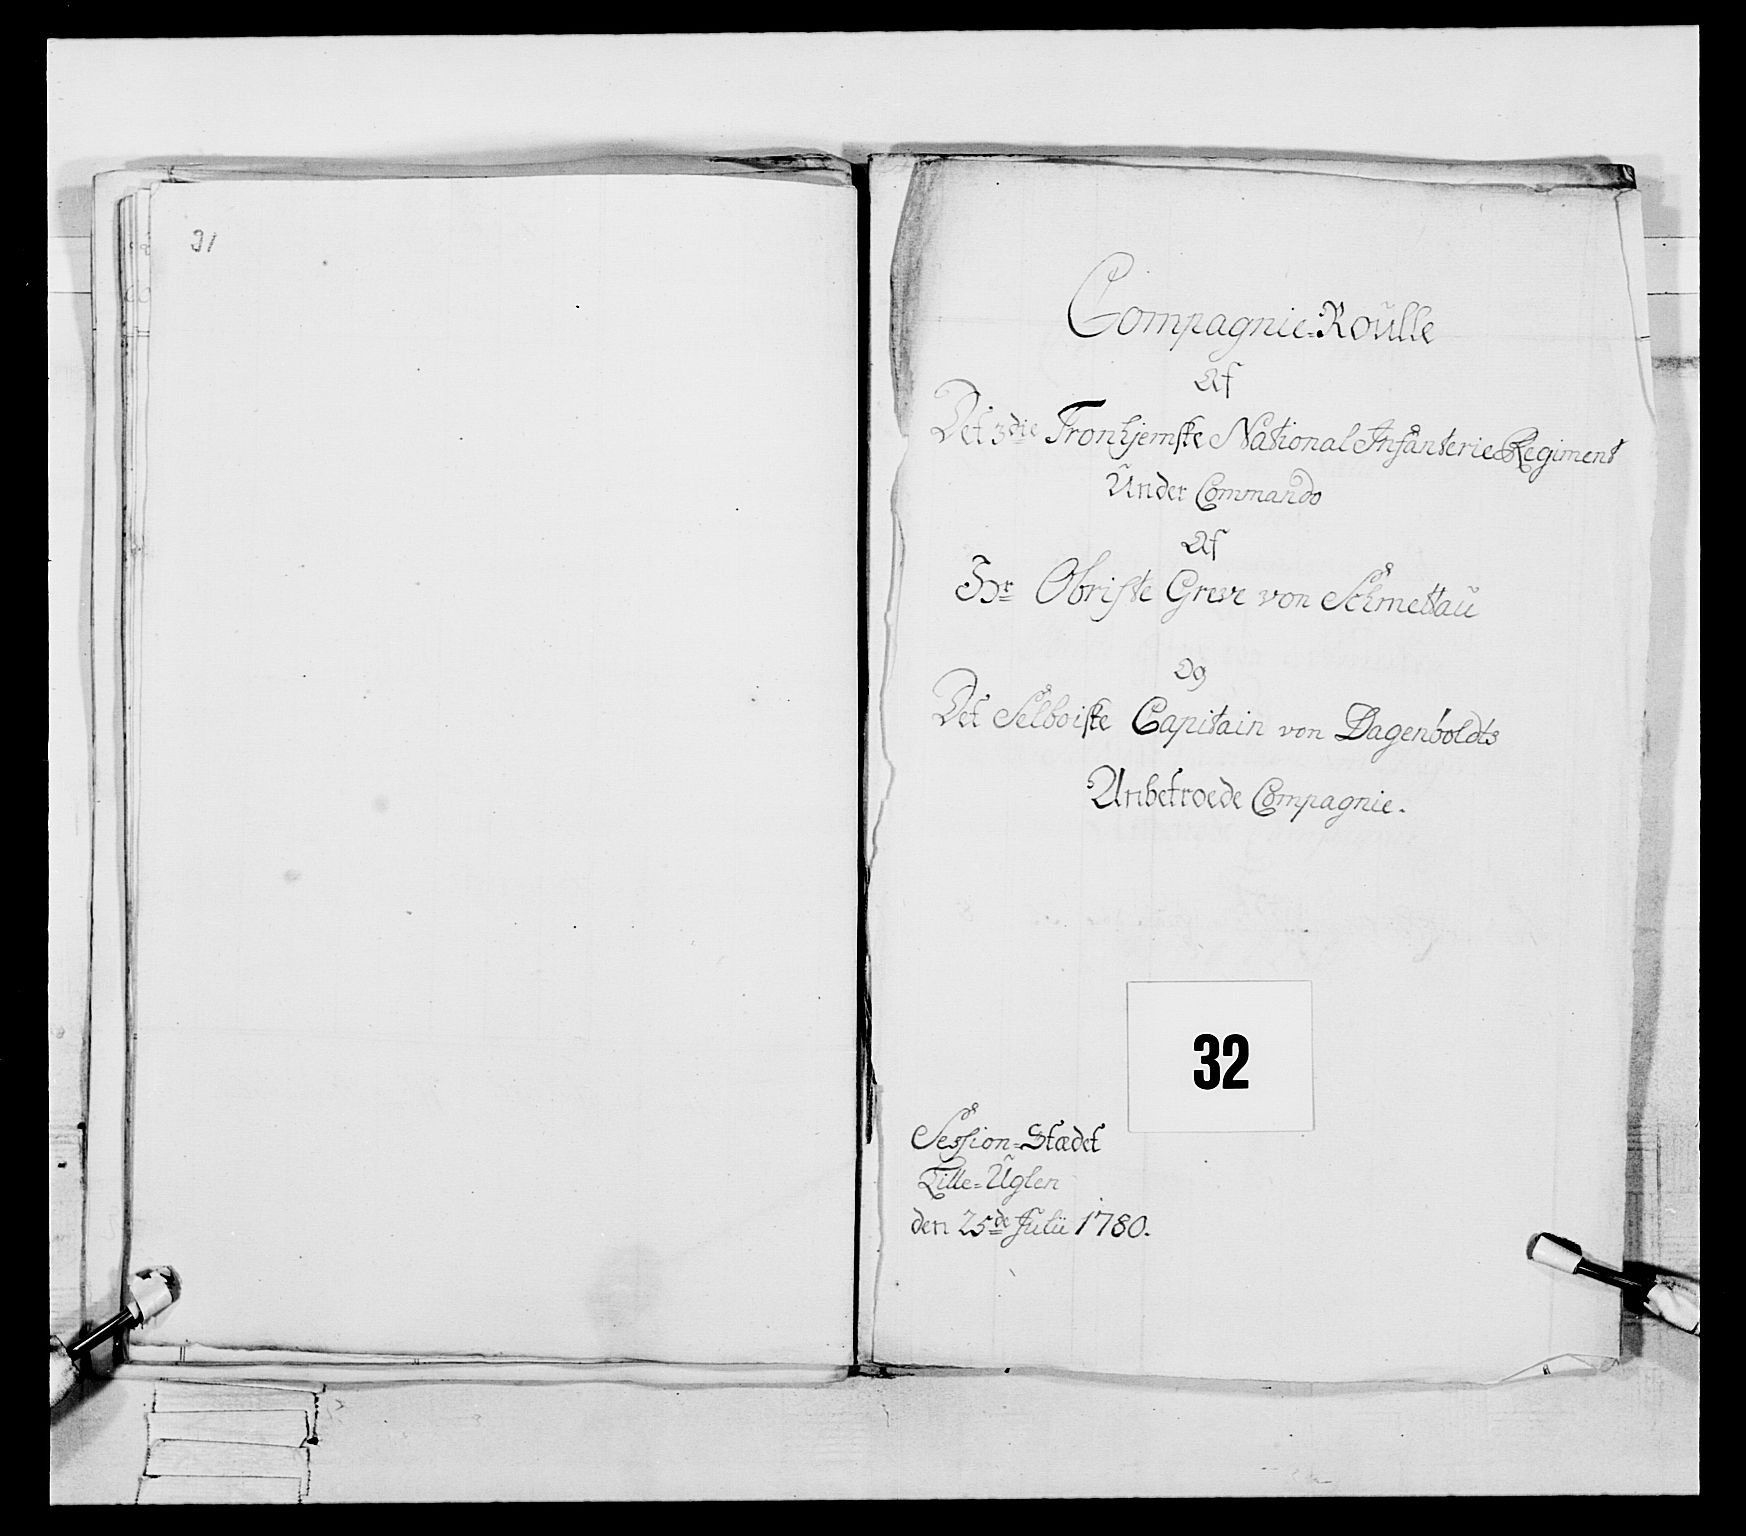 31
Compagnie-Roülle
Af
Det 3die Tronhjemske National Infanterie Regiment
Under Commando
Af
Hr Obriste Greve von Schmettaü
Og
Det Selboiske Capitain von Dagenboldts
Anbetroede Compagnie.
32
Session-Stædet
Lille-Uglen
den 25de Julii 1780.